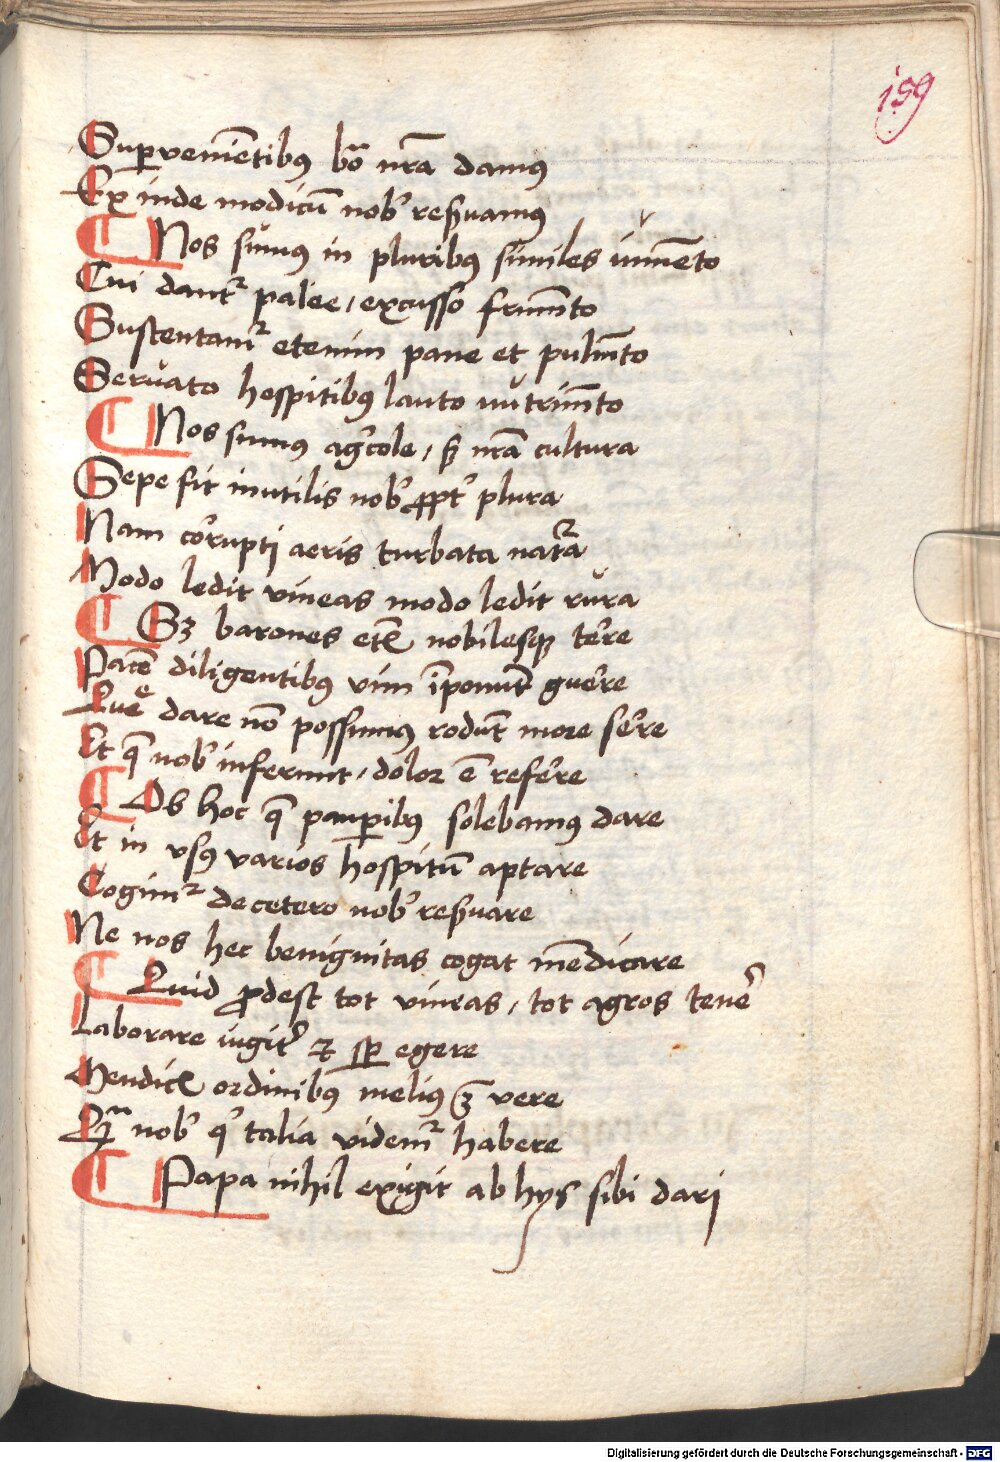 159
Supervenie͂tibꝯ bo͂a nr͂a damꝯ
Ex inde modicu͂ nob' res͂uamꝯ
¶ Nos sumus in pluribꝯ similes iume͂to
Cui dant᷑ palee / excusso frume͂to
Sustentam᷑ etenim pane et pulme͂to
Seruato hospitibꝯ lauto nutrime͂to
¶ Nos sumus ag'cole / s͂ nr͂a cultura
Sepe fit inutilis nob' ꝓpt' plura
Nam cor'upti aeris turbata nat᷑a
Modo ledit vineas modo ledit rura
¶ Sꝫ barones et͂ nobilesqꝫ ter're
Pace͂ diligentibꝯ vim i͂ponu͂t guer're
Que dare no͂ possumꝯ rodu͂t more ser're
Et q͂ nob' inferunt / dolor e͂ refer're
¶ Ob hoc q͂ pauꝑibꝯ solebamꝯ dare
Et in vsꝯ varios hospitu͂ aptare
Cogim᷑ de cetero nob' res͂uare
Ne nos hec benignitas cogat me͂dicare
¶ Quid ꝓdest tot vineas / tot agros tene'
Laborare iugit' ⁊ sꝑ egere
Mendic͂ ordinibꝯ meliꝯ ꝫ͂ vere
Qm͂ nob' q' talia videm᷑ habere
¶ Papa nihil exigit ab hys sibi dari
Digitalisierung gefördert durch die Deutsche Forschungsgemeinschaft - DFG